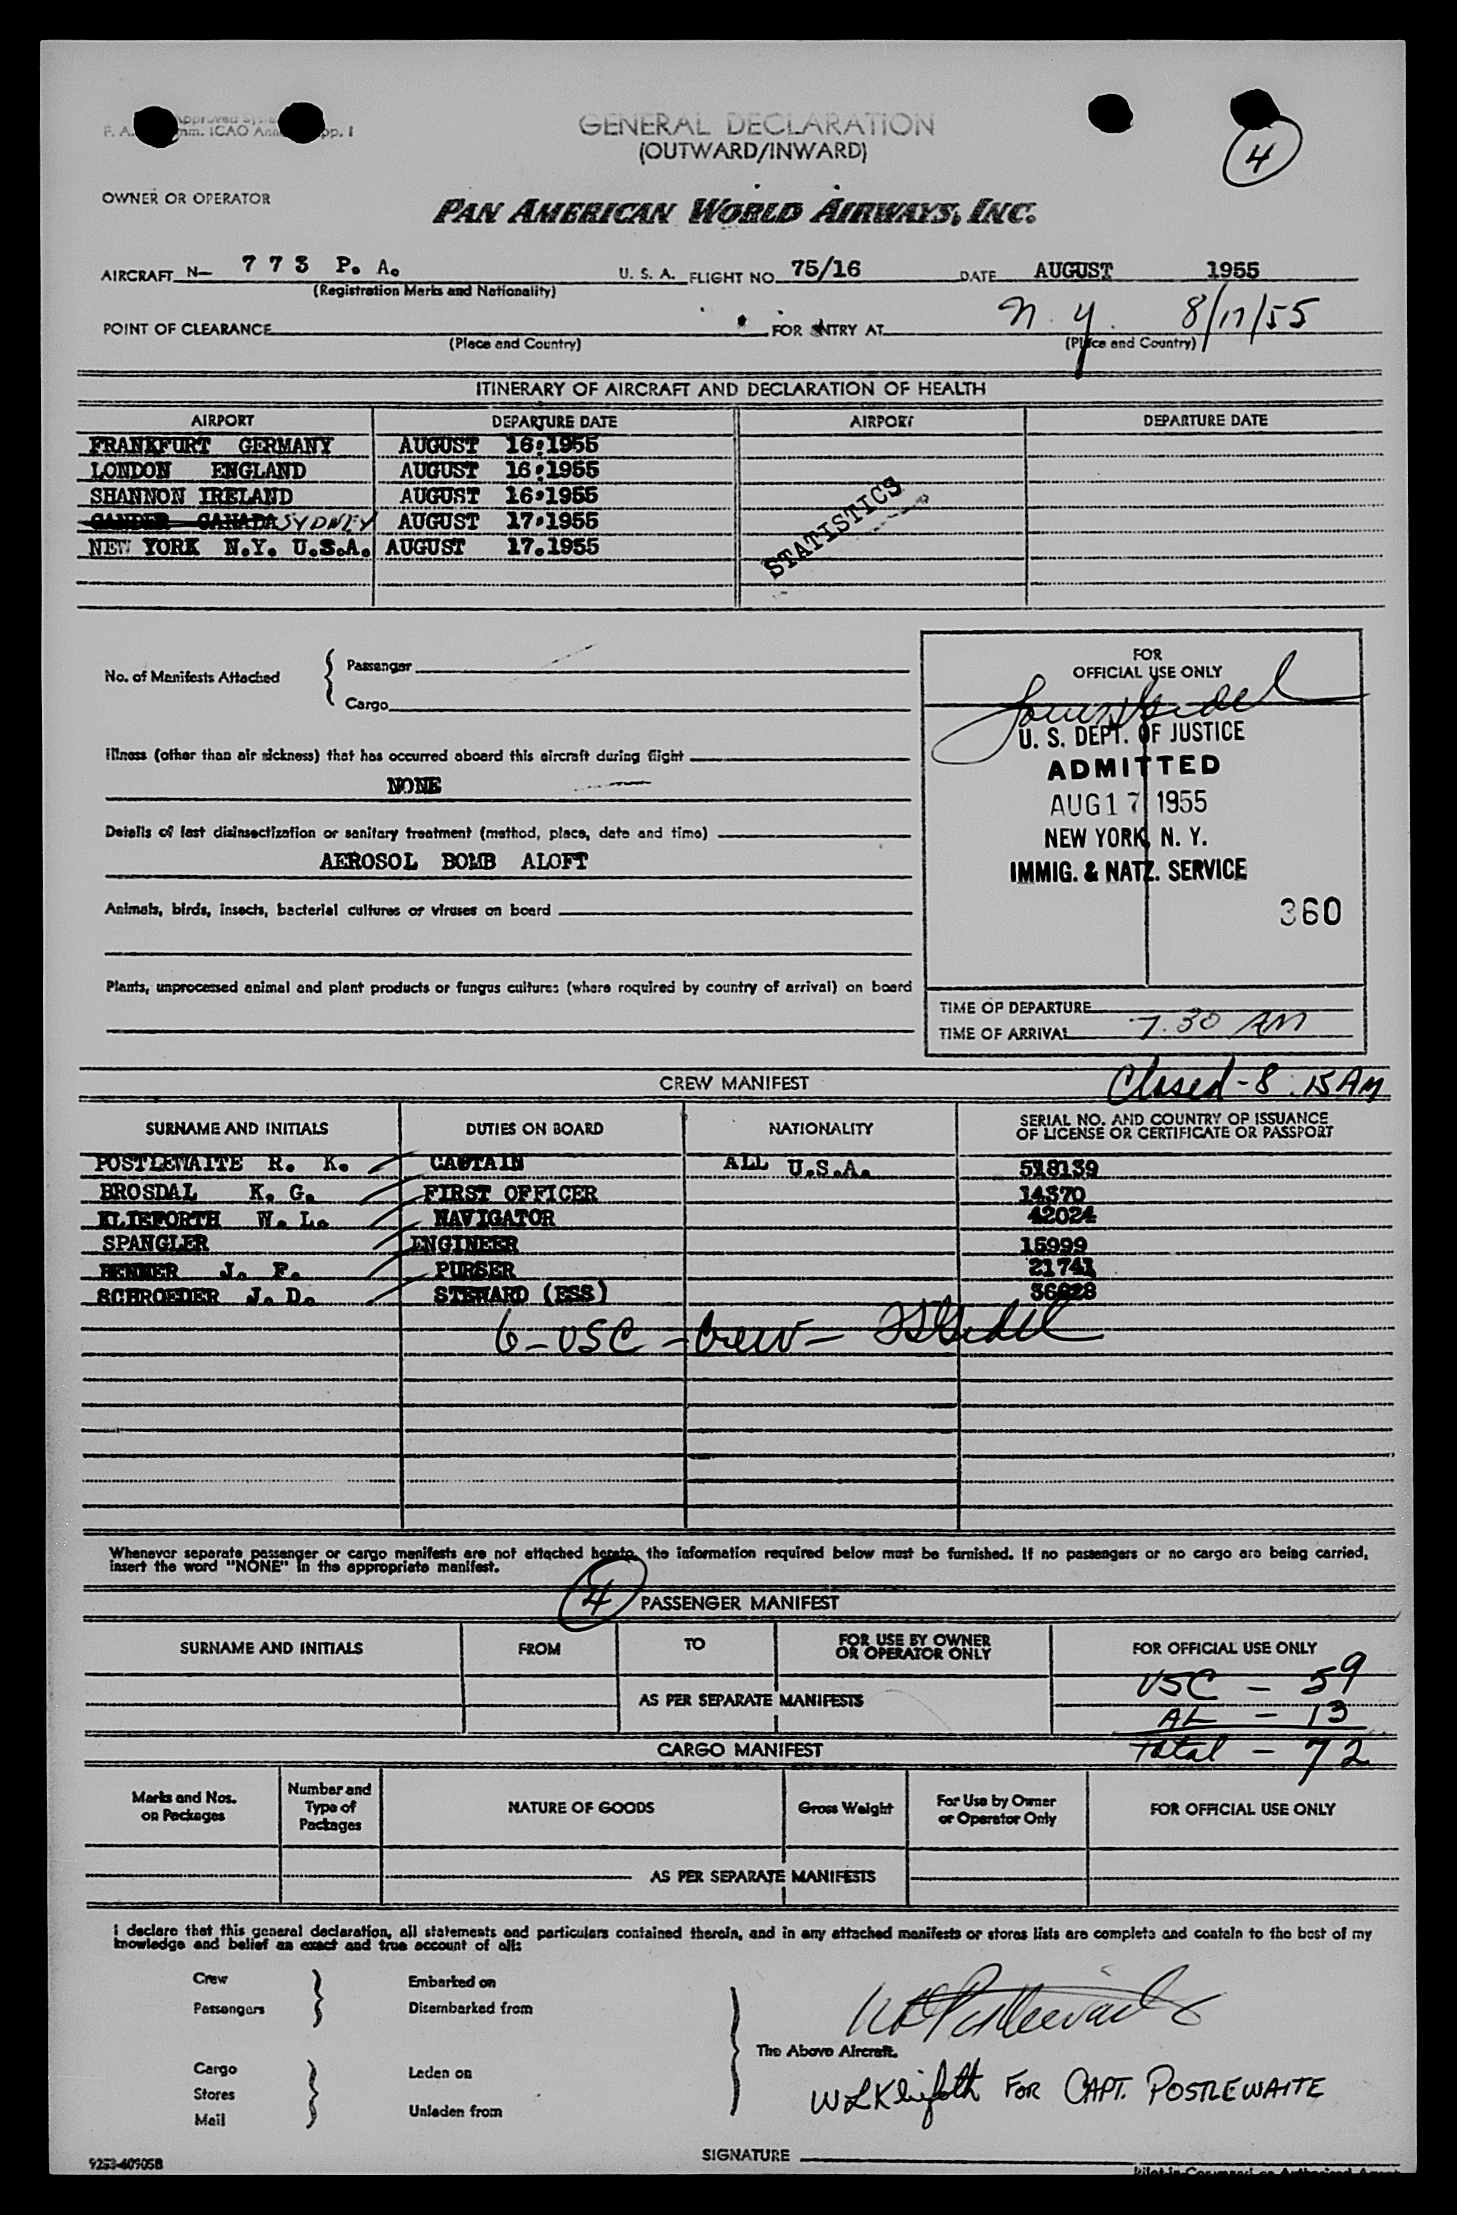 GENERAL DECLARATION
(OUTWARD/INWARD)
4
OWNER OR OPERATOR
PAN AMERICAN WORLD AIRWAYS, INC.
AIRCRAFT N— 773 P. A. U. S. A. FLIGHT NO. 75/16 DATE AUGUST 1955
(Registration Marks and Nationality)
POINT OF CLEARANCE FOR ENTRY AT N. Y. 8/17/55
(Place and Country) (Place and Country)
ITINERARY OF AIRCRAFT AND DECLARATION OF HEALTH
AIRPORT DEPARTURE DATE AIRPORT DEPARTURE DATE
FRANKFURT GERMANY AUGUST 16.1955
LONDON ENGLAND AUGUST 16.1955
SHANNON IRELAND AUGUST 16.1955
GANDER CANADA SYDNEY AUGUST 17.1955
NEW YORK N.Y. U.S.A. AUGUST 17.1955
STATISTICS
No. of Manifests Attached Passenger
Cargo
Illness (other than air sickness) that has occurred aboard this aircraft during flight
NONE
Details of last disinsectization or sanitary treatment (method, place, date and time)
AEROSOL BOMB ALOFT
Animals, birds, insects, bacterial cultures or viruses on board
Plants, unprocessed animal and plant products or fungus cultures (where required by country of arrival) on board
FOR
OFFICIAL USE ONLY
U. S. DEPT. OF JUSTICE
ADMITTED
AUG 17 1955
NEW YORK, N. Y.
IMMIG. & NATZ. SERVICE
360
TIME OF DEPARTURE
TIME OF ARRIVAL 7.30 AM
CREW MANIFEST Closed - 8.15 AM
SURNAME AND INITIALS DUTIES ON BOARD NATIONALITY SERIAL NO. AND COUNTRY OF ISSUANCE
OF LICENSE OR CERTIFICATE OR PASSPORT
POSTLEWAITE R. K. CAPTAIN ALL U.S.A. 518139
BROSDAL K. G. FIRST OFFICER 14370
KLIEFORTH W. L. NAVIGATOR 42024
SPANGLER ENGINEER 15999
BENNER J. F. PURSER 21741
SCHROEDER J. D. STEWARD (ESS) 36828
6 - USC - Crew -
Whenever separate passenger or cargo manifests are not attached hereto, the information required below must be furnished. If no passengers or no cargo are being carried,
insert the word "NONE" in the appropriate manifest.
4 PASSENGER MANIFEST
SURNAME AND INITIALS FROM TO FOR USE BY OWNER
OR OPERATOR ONLY FOR OFFICIAL USE ONLY
USC - 59
AS PER SEPARATE MANIFESTS
AL - 13
CARGO MANIFEST Total - 72
Marks and Nos.
on Packages Number and
Type of
Packages NATURE OF GOODS Gross Weight For Use by Owner
or Operator Only FOR OFFICIAL USE ONLY
AS PER SEPARATE MANIFESTS
I declare that this general declaration, all statements and particulars contained therein, and in any attached manifests or stores lists are complete and contain to the best of my
knowledge and belief an exact and true account of all:
Crew Embarked on
Passengers Disembarked from
The Above Aircraft.
Cargo Laden on
Stores
Mail Unladen from
WLKlieforth FOR CAPT. POSTLEWAITE
SIGNATURE
9253-60905B